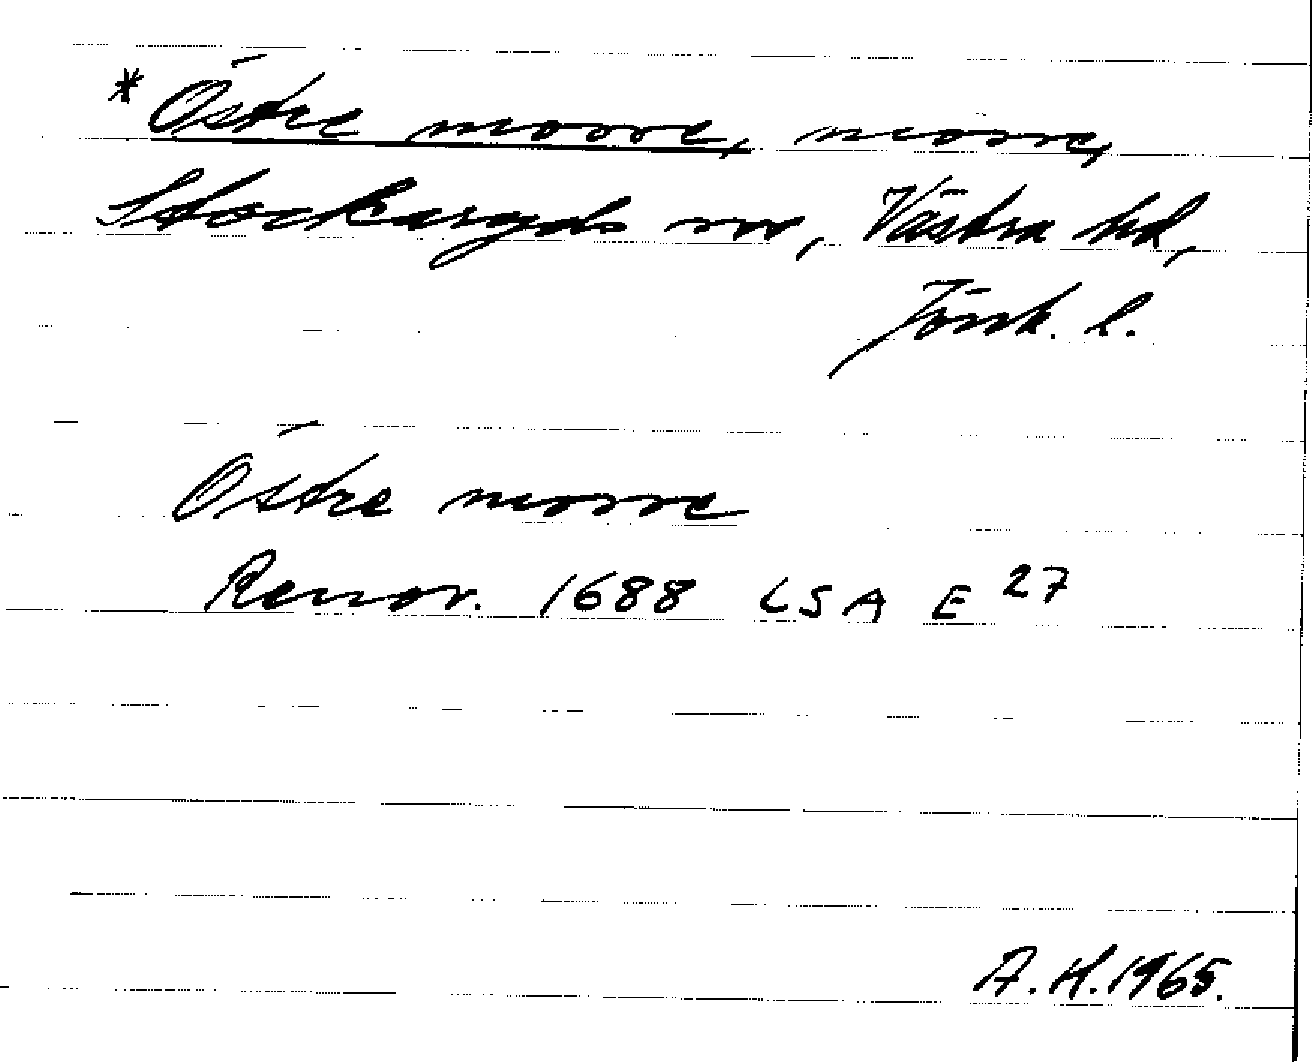 * Östre mosse, mosse,
Stockaryds sn, Västra hd,
Jönk. l.
Östre mosse
Renov. 1688 LSA E 27
A.H. 1965.